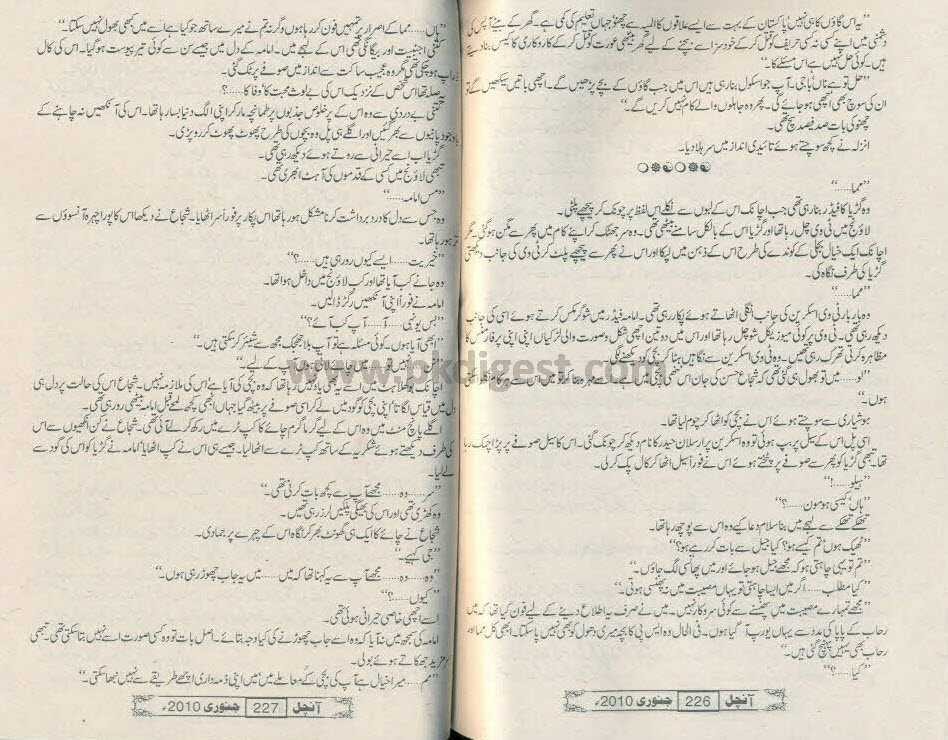 "یہ اس گاؤں کا ہی نہیں پاکستان کے بہت سے ایسے علاقوں کا المیہ ہے چھنو جہاں تعلیم کی کمی ہے۔ گھر کے بیٹے آپس کی
دشمنی میں اپنے کسی نہ کسی حریف کو قتل کر کے خود سزا سے بچنے کے لیے گھر بیٹھی عورت کو قتل کر کے کاروکاری کا کیس بنا دیتے
ہیں۔ کوئی حل نہیں ہے اس مسئلے کا۔"
"حل تو ہے ناں باجی۔ آپ جو اسکول بنا رہی ہیں اس میں جب گاؤں کے بچے پڑھیں گے۔ اچھی باتیں سیکھیں گے تو
ان کی سوچ بھی اچھی ہو جائے گی۔ پھر وہ جاہلوں والے کام نہیں کریں گے۔"
چھنو کی بات صد فیصد سچ تھی۔
انزلہ نے کچھ سوچتے ہوئے تائیدی انداز میں سر ہلا دیا۔
"مما......"
وہ گڑیا کا فیڈر بنا رہی تھی جب اچانک اس کے لبوں سے نکلے اس لفظ پر چونک کر پیچھے پلٹی۔
لاؤنج میں ٹی وی چل رہا تھا اور گڑیا اس کے بالکل سامنے بیٹھی تھی۔ وہ سر جھٹک کر اپنے کام میں پھر سے مگن ہو گئی۔ مگر
اچانک ایک خیال بجلی کے کوندے کی طرح اس کے ذہن میں لپکا اور اس نے پھر سے پیچھے پلٹ کر ٹی وی کی جانب دیکھتی
گڑیا کی طرف نگاہ کی۔
"مما......"
وہ بار بار ٹی وی اسکرین کی جانب انگلی اٹھاتے ہوئے پکار رہی تھی۔ امامہ فیڈر میں شوگر مکس کرتے ہوئے اسی کی جانب
دیکھ رہی تھی۔ ٹی وی پر کوئی میوزیکل شو چل رہا تھا اور اس میں دو تین اچھی شکل و صورت والی لڑکیاں اپنی اپنی پرفارمنس کا
مظاہرہ کرتی تھرک رہی تھیں۔ وہ ٹی وی اسکرین سے نگاہیں ہٹا کر بچی کو دیکھنے لگی۔
"لو...... میں تو بھول ہی گئی تھی کہ شجاع حسن کی جان اس ننھی پری میں ہے
ہوں۔"
ہوشیاری سے سوچتے ہوئے اس نے بچی کو اٹھا کر چوم لیا تھا۔
اسی پل اس کے سیل پر بپ ہوئی تو وہ اسکرین پر ارسلان حیدر کا نام دیکھ کر چونک گئی۔ اس کا سیل صوفے پر پڑا چمک رہا
تھا۔ تبھی گڑیا کو پھر سے صوفے پر پٹختے ہوئے اس نے فوراً سیل اٹھا کر کال پک کر لی۔
"ہیلو......!"
"ہاں، کیسی ہو مون......؟"
تھکے تھکے سے لہجے میں بنا سلام دعا کیے وہ اس سے پوچھ رہا تھا۔
"ٹھیک ہوں، تم کیسے ہو؟ کیا جیل سے بات کر رہے ہو؟"
"تم تو یہی چاہتی ہو کہ مجھے جیل ہو جائے اور میں پھانسی لگ جاؤں۔"
"کیا مطلب...... اگر میں ایسا چاہتی تو یہاں مصیبت میں نہ پھنسی ہوتی۔"
"مجھے تمہارے مصیبت میں پھنسنے سے کوئی سروکار نہیں۔ میں نے صرف یہ اطلاع دینے کے لیے فون کیا تھا کہ میں
رحاب کے پاپا کی مدد سے یہاں یورپ آ گیا ہوں۔ فی الحال وہ ایس پی کا بچہ میری دھول کو بھی نہیں پا سکتا۔ ابھی کل مما اور
رحاب بھی یہیں پہنچ گئی ہیں۔"
"کیا......؟"
آنچل 226 جنوری 2010ء
"ہاں...... مما کے اصرار پر تمہیں فون کر رہا ہوں وگرنہ تم نے میرے ساتھ جو کیا ہے اسے میں کبھی بھول نہیں سکتا۔"
کتنی اجنبیت اور بیگانگی تھی اس کے لہجے میں۔ امامہ کے دل میں جیسے سن سے کوئی تیر پیوست ہو گیا۔ اس کی کال
ڈراپ ہو چکی تھی مگر وہ عجیب ساکت سے انداز میں صوفے پر ٹک گئی۔
صلہ تھا اس شخص کے نزدیک اس کی بے لوث محبت کا وفا کا......؟
کتنی بے دردی سے وہ اس کے پرخلوص جذبوں پر طمانچہ مار کر اپنی الگ دنیا بسا رہا تھا۔ اس کی آنکھیں نہ چاہنے کے
باوجود پانیوں سے بھر گئیں اور اگلے ہی پل وہ بچوں کی طرح پھوٹ پھوٹ کر رو پڑی۔
گڑیا اب اسے حیرانی سے روتے ہوئے دیکھ رہی تھی۔
تبھی لاؤنج میں کسی کے قدموں کی آہٹ ابھری تھی۔
"مس امامہ......"
وہ جس سے دل کا درد برداشت کرنا مشکل ہو رہا تھا اس پکار پر فوراً سر اٹھایا۔ شجاع نے دیکھا اس کا پورا چہرہ آنسوؤں سے
تر ہو رہا تھا۔
"خیریت...... ایسے کیوں رو رہی ہیں......؟"
وہ جانے کب آیا تھا اور کب لاؤنج میں داخل ہوا تھا۔
امامہ نے فوراً اپنی آنکھیں رگڑ ڈالیں۔
"بس یونہی...... آ...... آپ کب آئے؟"
"ابھی آیا ہوں۔ کوئی مسئلہ ہے تو آپ بلا جھجک مجھ سے شیئر کر سکتی ہیں۔"
کے لیے۔"
یہ بھی یاد نہیں رہا تھا کہ وہ بچی کی آیا ہے اس کی ملازمہ نہیں۔ شجاع اس کی حالت پر دل ہی
دل میں قیاس لگاتا اپنی بچی کو گود میں لے کر اسی صوفے پر بیٹھ گیا جہاں ابھی کچھ لمحے قبل امامہ بیٹھی رو رہی تھی۔
اگلے پانچ منٹ میں وہ اس کے لیے گرما گرم چائے کا کپ ٹرے میں رکھ کر لے آئی تھی۔ شجاع نے کن انکھیوں سے اس
کی طرف دیکھتے ہوئے شکریہ کے ساتھ کپ ٹرے سے اٹھا لیا۔ جیسے ہی اس نے کپ اٹھایا امامہ نے گڑیا کو اس کی گود سے
لے لیا۔
"سر...... وہ...... مجھے آپ سے کچھ بات کرنی تھی۔"
وہ کھڑی تھی اور اس کی بھیگی پلکیں لرز رہی تھیں۔
شجاع نے چائے کا ایک ہی گھونٹ بھر کر نگاہ اس کے چہرے پر جما دی۔
"جی کہیے۔"
"وہ...... وہ...... مجھے آپ سے یہ کہنا تھا کہ میں...... میں یہ جاب چھوڑ رہی ہوں۔"
"کیوں......؟"
اسے اچھی خاصی حیرانی ہوئی تھی۔
امامہ کی سمجھ میں نہ آیا کہ وہ اسے جاب چھوڑنے کی کیا وجہ بتائے۔ اصل بات تو وہ کسی صورت اسے نہیں بتا سکتی تھی۔ تبھی
سر مزید جھکاتے ہوئے بولی۔
"مم...... میرا خیال ہے آپ کی بچی کے معاملے میں میں اپنی ذمہ داری اچھے طریقے سے نہیں نبھا سکتی۔"
آنچل 227 جنوری 2010ء
www.pkdigest.com